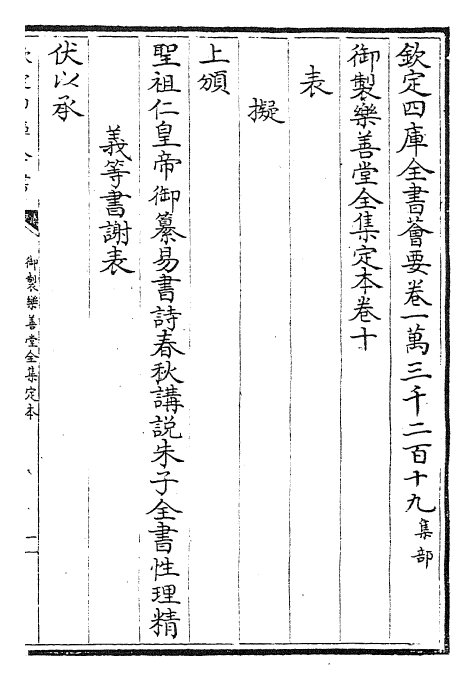 欽定四庫全書薈要卷一萬三千二百十九集部
御製樂善堂全集定本卷十
表
擬
上頒
聖祖仁皇帝御纂易書詩春秋講說朱子全書性理精
義等書謝表
伏以承
御製樂善堂全集定本